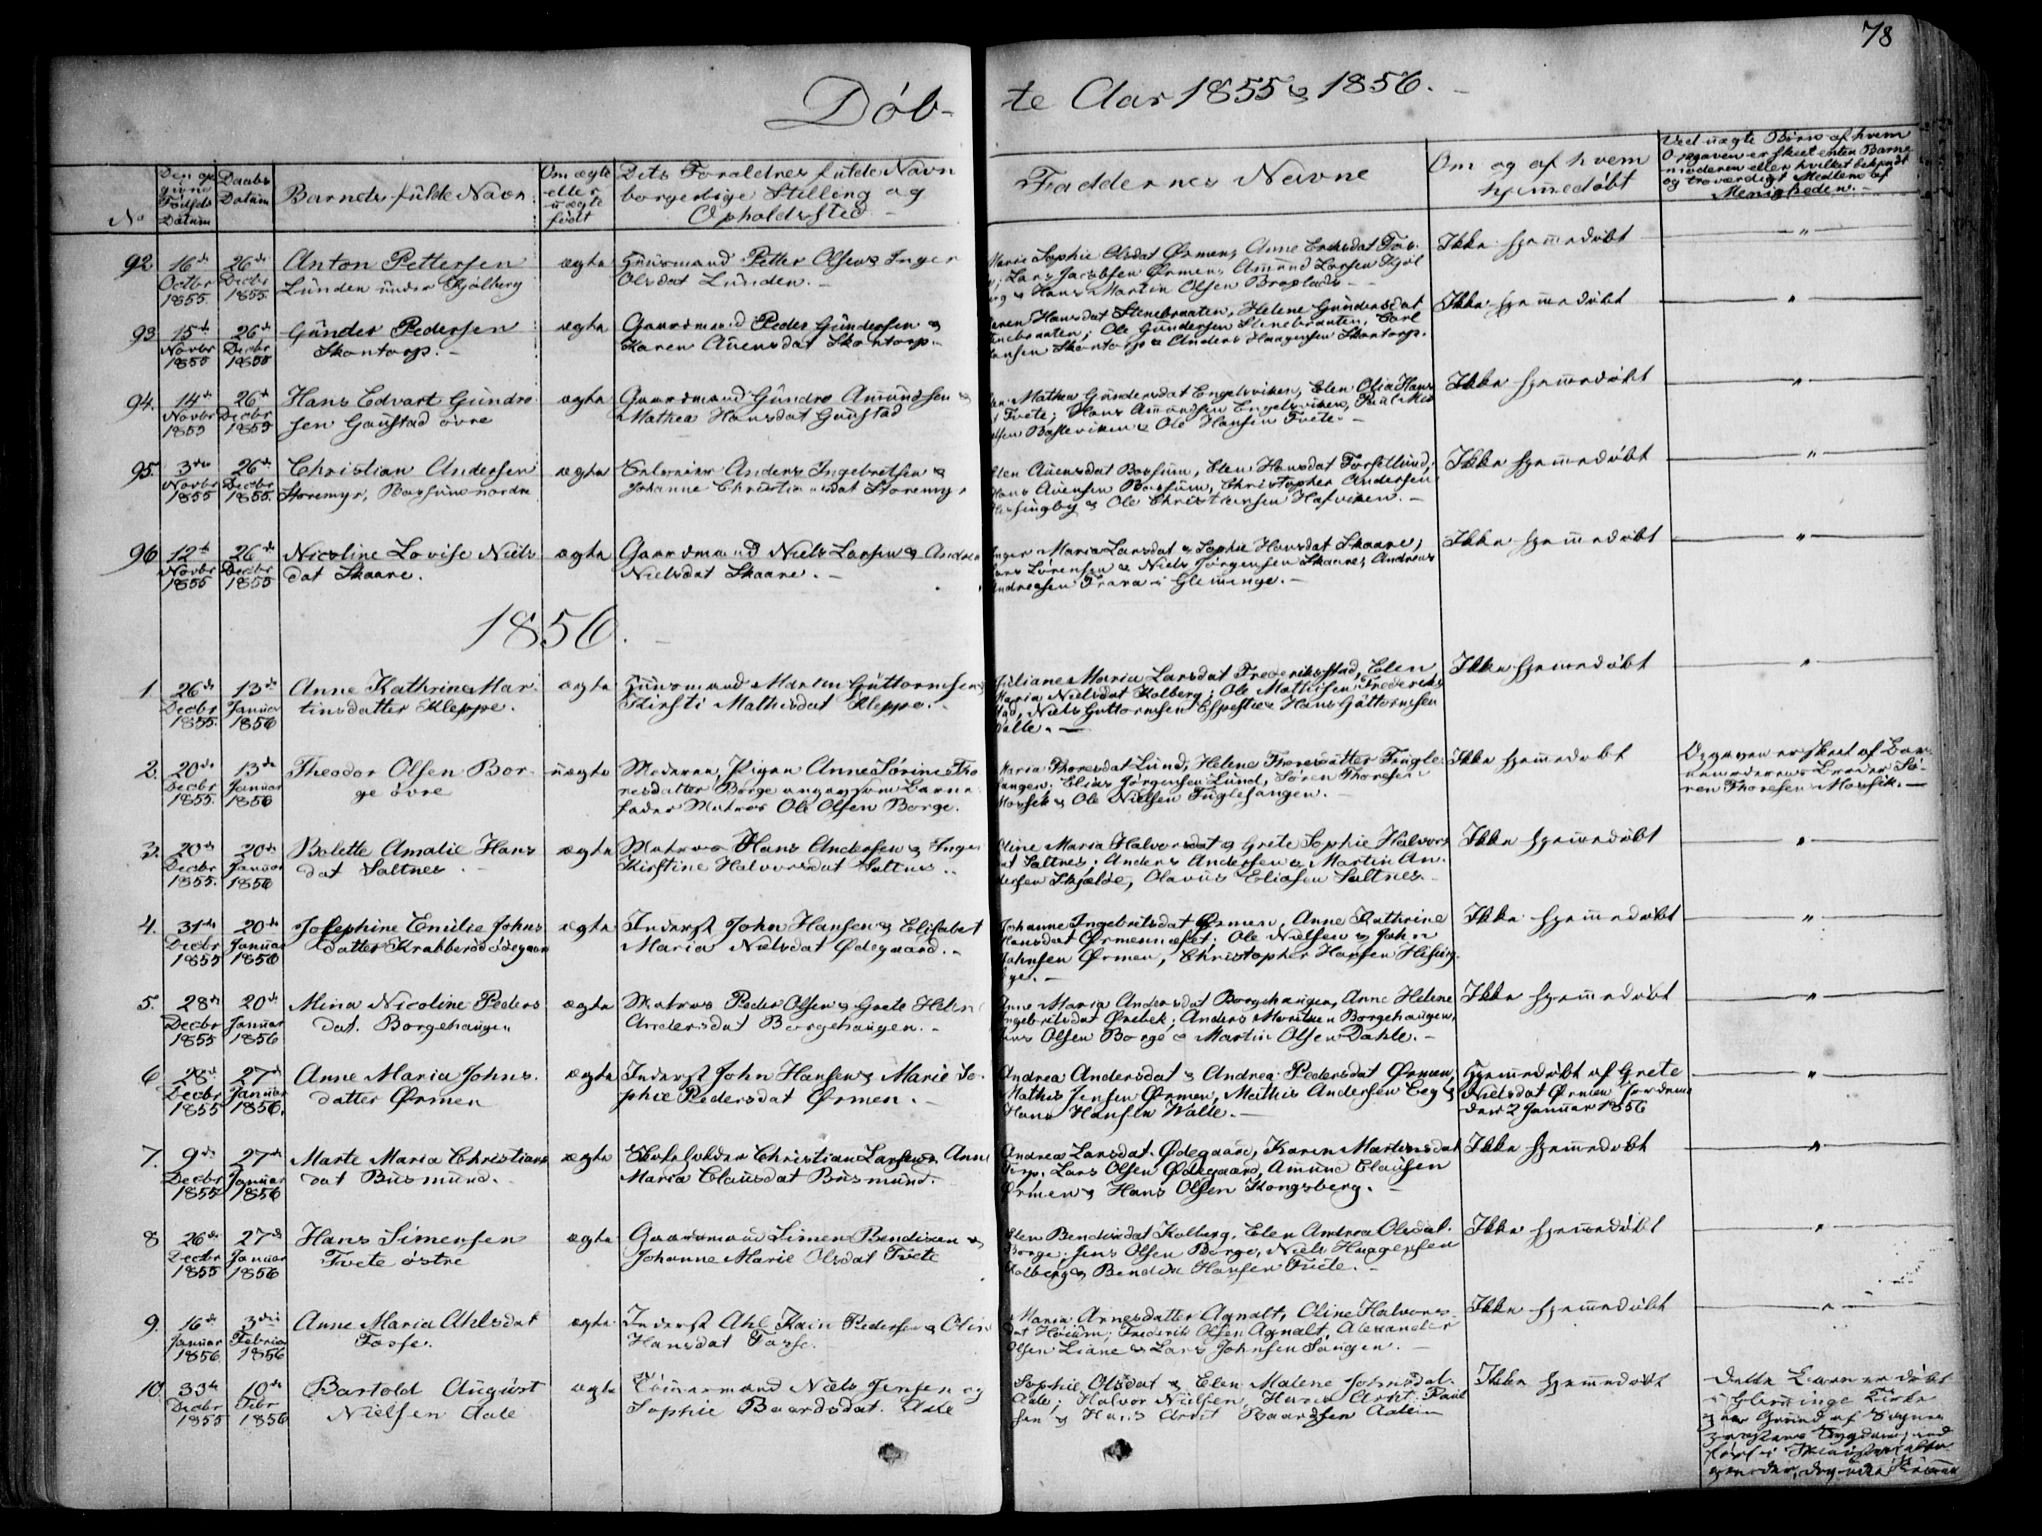 78
Døb-
te Aar 1855 & 1856.
No
Den op
givne
Fødsels
Datum
Daabs
Datum
Barnets fulde Navn
Om ægte
eller
uægte
født
Dets Forældres fulde Navn
borgerlige Stilling og
Opholdssted
Faddernes Navne
Om og af hvem
hjemmedøbt
Ved uægte Børn af hvem
Opgaven er skeet enten Barne
moderen eller hvilket bekjendt
og troværdigt Medlem af
Menigheden.
92 16de Octbr 1855. 26de Decbr 1855.
Anton Pettersen
Lunden under Kjølberg
ægte
Huusmand Petter Olsen & Inger
Olsdat Lunden.
Marie Sophie Olsdat Ørmen, Anne
Lars Jacobsen Ørmen, Amund Larsen Kjøl
& Hans Martin Olsen
Ikke hjemmedøbt
93 15de Novbr 1855 26de Decbr 1855
Gunder Pedersen
Skontorp.
ægte
Gaardmand Peder Gundersen &
Karen Auensdat Skontorp.
Hansdat Stenebraaten, Helene Gundersdat
Ole Gundersen Stenebraaten, Carl
Skontorp & Anders Haagensen Skontorp.
Ikke hjemmedøbt
94. 14de Novbr 1855 26de Decbr 1855
Hans Edvart Gundre
sen Gaustad øvre
ægte
Gaardmand Gundro Amundsen &
Mathea Hansdat Gaustad
Mathea Gundersdat Engelsviken, Elen Olia Hans
Tvete; Hans Amundsen Engelsviken, Paul
Basteviken & Ole Hansen Tvete.
Ikke hjemmedøbt
95. 3die Novbr 1855 26de Decbr 1855.
Christian Andersen
Storemyr, Borsum nordre
ægte
Anders Ingebretsen &
Johanne Christiansdat Storemyr
Elen Auensdat Borsum, Elen Hansdat Torsellund,
Hans Auensen Borsum, Christopher Andersen
& Ole Christiansen Hafviken.
Ikke hjemmedøbt
96 12te Novbr 1855 26de Decbr 1855
Nicoline Lovise Niels
dat Skaare.
ægte
Gaardmand Niels Larsen & Andrea
Nielsdat Skaare.
Inger Maria Larsdat & Sophie Hansdat Skaare,
Lars Lørensen & Niels Jørgensen Skaare, Andreas
Andreasen Trara i Glemminge.
Ikke hjemmedøbt
1856.
1. 26de Decbr 1855. 13de Januar 1856
Anne Kathrine Mar-
tinsdatter Kleppe.
ægte
Huusmand Martin Guttormsen &
Kirsti Mathisdat Kleppe.
Juliane Maria Larsdat Frederiksstad, Elen
Maria Nielsdat Kolberg; Ole Mathisen Frederiks
stad, Niels Guttormsen & Hans Guttormsen
Ikke hjemmedøbt
2. 20de Decbr 1855. 13de Januar 1856
Theodor Olsen Bor-
ge øvre
uægte
Moderen, Pigen Anne Sørine Tho
resdatter Borge angav som Barne
fader Matros Ole Olsen Borge.
Maria Thoresdat Lund, Helene Thoresdatter Fugle
sangen; Elias Jørgensen Lund, Søren Thoresen
Mosseik & Ole Nielsen Fuglesangen.
Ikke hjemmedøbt
Opgaven er skeet af Bar-
nemoderens Broder Sø-
ren Thoresen Mosseik.
3. 20de Decbr 1855. 20de Januar 1856
Bolette Amalie Hans
dat Saltnes.
ægte
Matros Hans Andersen & Inger
Kirstine Halvorsdat Saltnes.
Oline Maria Halvorsdat & Grete Sophie Halvors
dat Saltnes; Anders Andersen & Martin An-
dersen Skjælde, Olavus Eliasen Saltnes.
Ikke hjemmedøbt
4. 31te Decbr 1855 20de Januar 1856
Josephine Emilie Johns
datter Krabberødødegaard
ægte
Inderst John Hansen & Elisabet
Maria Nielsdat Ødegaard.
Johanne Ingebretsdat Ørmen, Anne Kathrine
Hansdat Ørmennæset; Ole Nielsen & John
Johnsen Ørmen, Christopher Hansen Hising-
bye.
Ikke hjemmedøbt
5. 28de Decbr 1855 20de Januar 1856
Mina Nicoline Peders
dat. Borgehaugen
ægte
Matros Peder Olsen & Grete Helen
Andersdat Borgehaugen.
Anne Maria Andersdat Borgehaugen, Anne Helene
Ingebretsdat Ørebek; Anders Borgehaugen,
Jens Olsen Borge & Martin Olsen Dahle.
Ikke hjemmedøbt
6 28de Decbr 1855 27de Januar 1856.
Anne Maria Johns-
datter Ørmen
ægte
Inderst John Hansen & Marie So-
phie Pedersdat Ørmen.
Andrea Andersdat & Andrea Pedersdat Ørmen,
Mathis Jensen Ørmen, Mathis Andersen Eeg &
Hans Hansen Walle.
Hjemmedøbt af Grete
Nielsdat Ørmen
den 2 Januar 1856
7. 9de Decbr 1855 27de Januar 1856
Marte Maria Christians
dat Busmund.
ægte
Christian Larsen & Anne
Maria Clausdat Busmund.
Andrea Larsdat Ødegaard, Karen Martinsdat
Torp, Lars Olsen Ødegaard, Amund Clausen
Ørmen & Hans Olsen Kongsberg.
Ikke hjemmedøbt
8 26de Decbr 1855 27de Januar 1856
Hans Simensen
Tvete østre
ægte
Gaardmand Simen Bendixen &
Johanne Marie Olsdat Tvete
Elen Bendixdat Kolberg, Elen Andrea Olsdat
Borge; Jens Olsen Borge, Niels Haagensen
Kolberg & Bendix Hansen Tvete.
Ikke hjemmedøbt
9. 16de Januar 1856. 3die Februar 1856
Anne Maria Ahlsdat
Fosse.
ægte
Inderst Ahl Kain Pedersen & Oline
Hansdat Fosse.
Maria Arnesdatter Agnalt, Oline Halvors
dat Høium; Frederik Olsen Agnalt, Alexander
Olsen Liane & Lars Johnsen Haugen.
Ikke hjemmedøbt
10. Decbr 1855 10de Febr 1856
Bartold August
Nielsen Aale
ægte
Tømmermand Niels Jensen og
Sophie Baardsdat. Aale
Sophie Olsdat & Elen Malene Johnsdat.
Aale; Halvor Nielsen, Hans Arnt Paul
sen & Hans Arnt Baardsen Aale
Ikke hjemmedøbt
Dette Barn er døbt
i Glemminge Kirke
paa Grund af Sogne
præstens Sygdom,